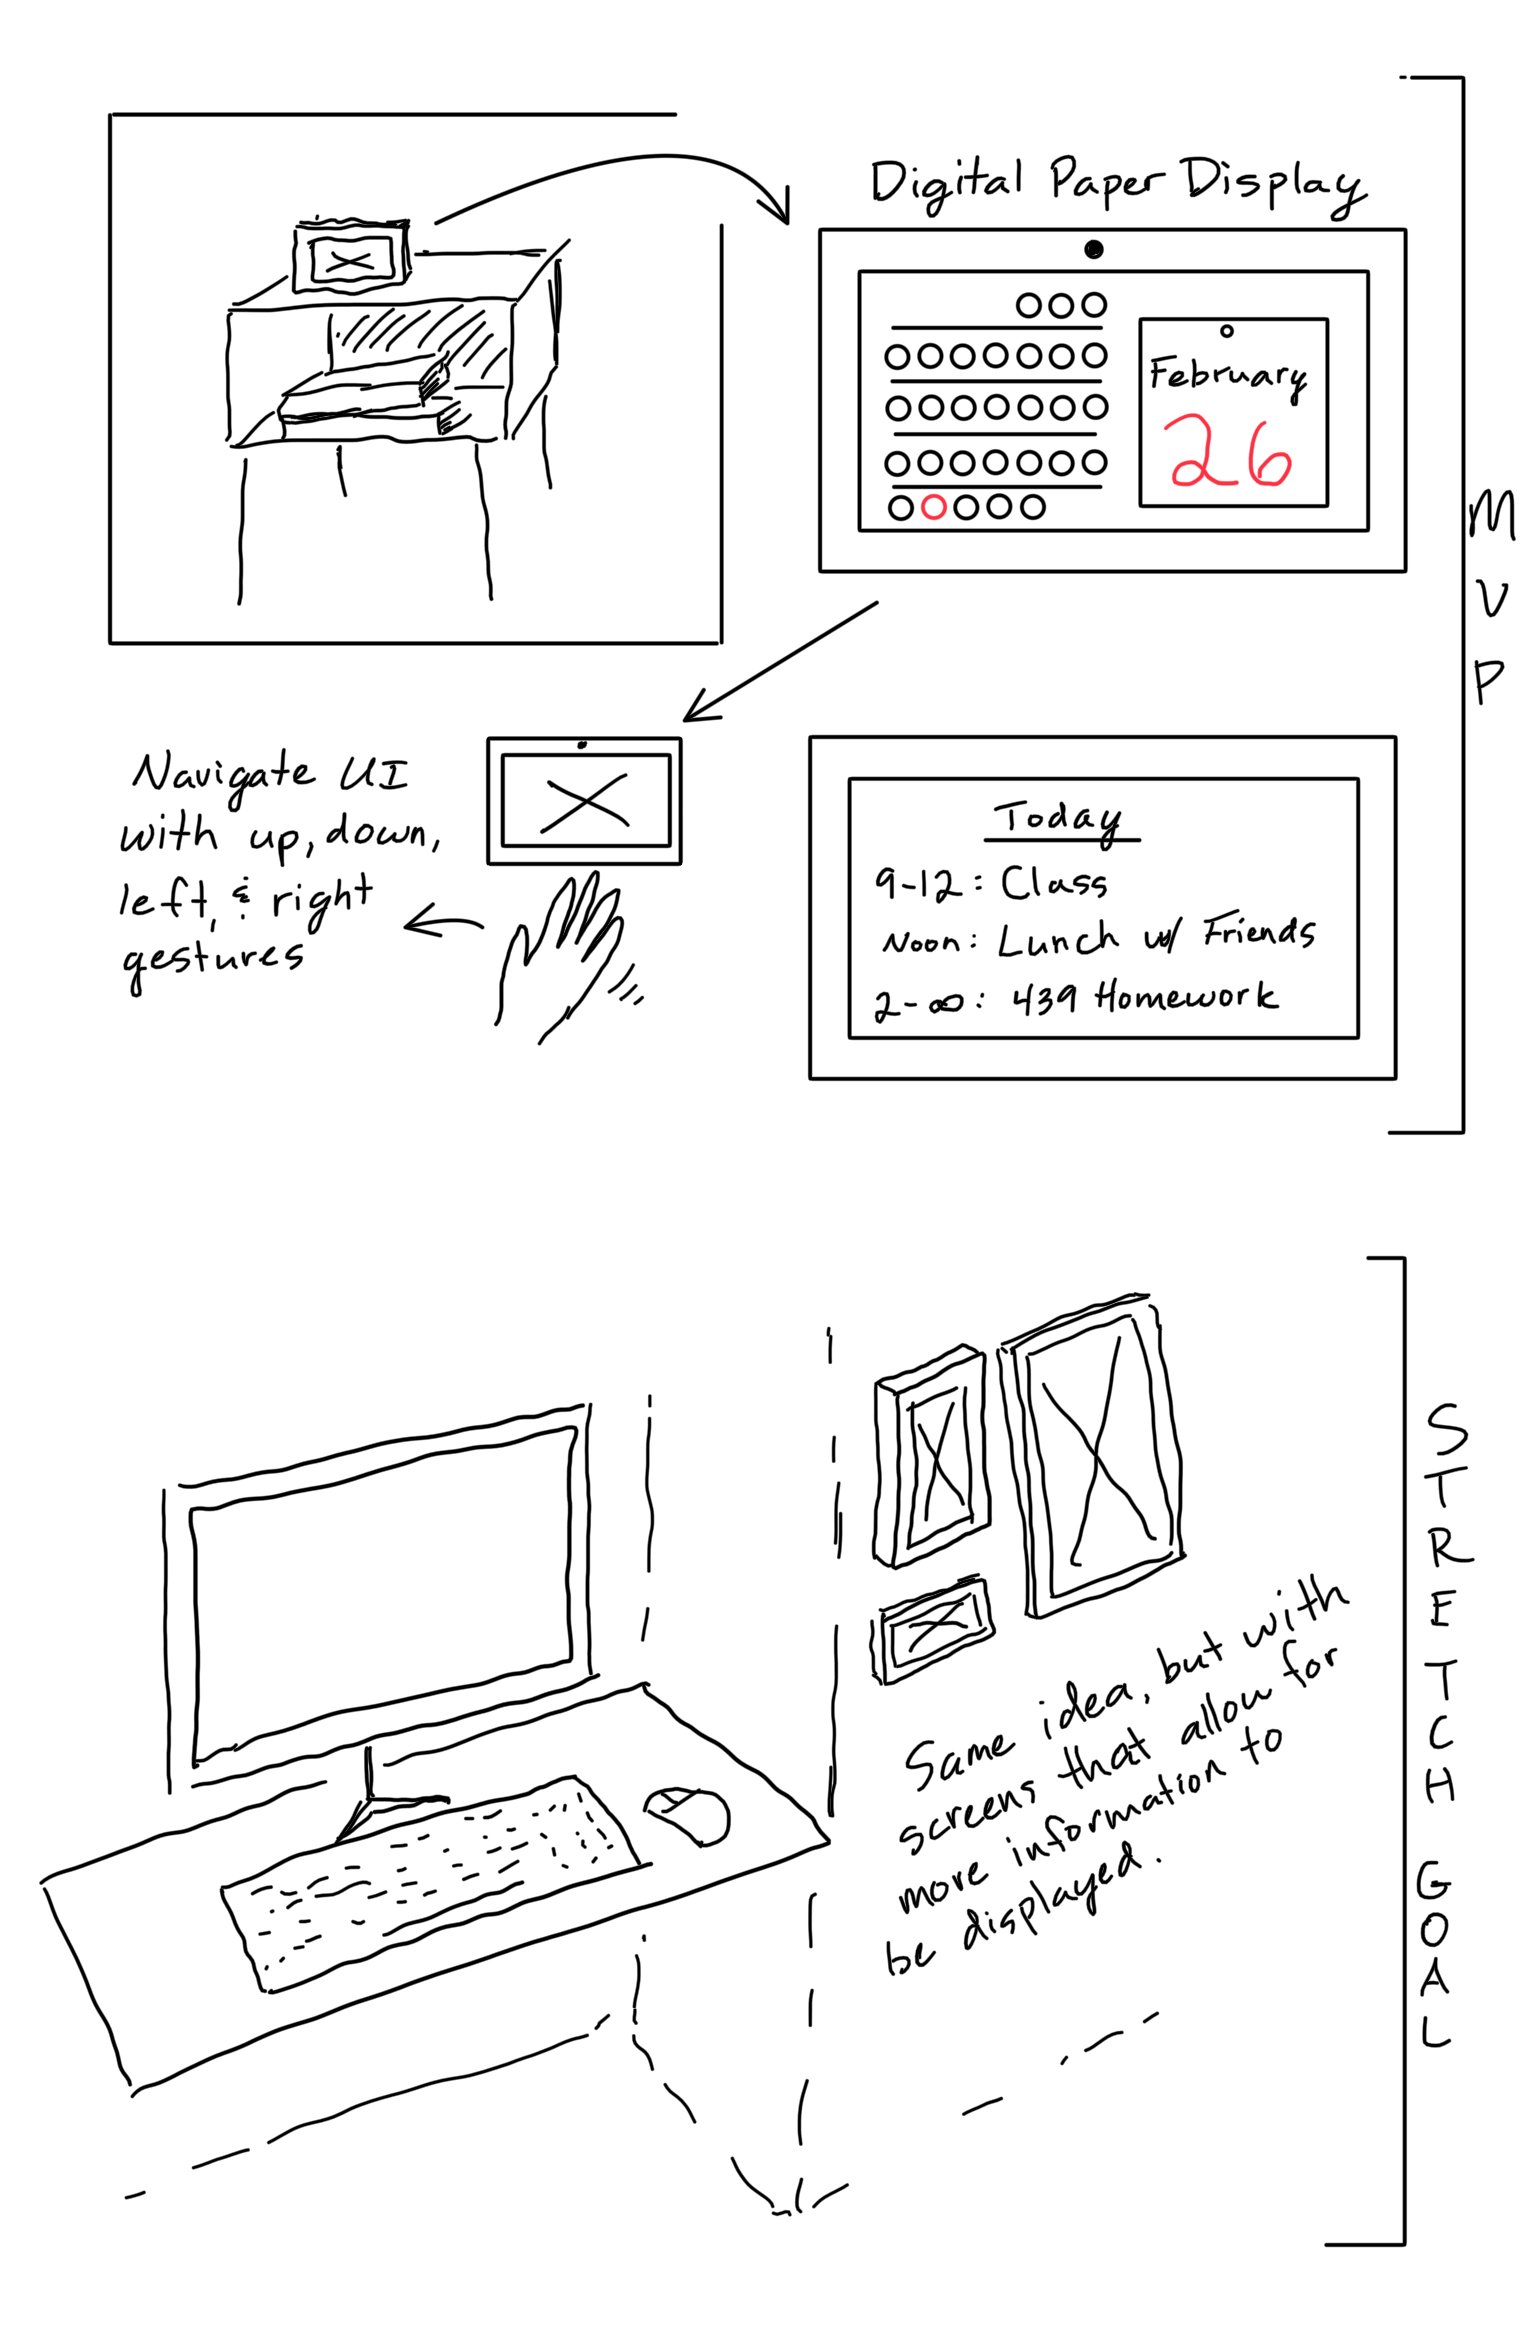 Digital Paper Display
February
26
MVP
Navigate UI
with up, down,
left, & right
gestures
Today
9-12: Class
Noon: Lunch w/ Friends
2-∞: 439 Homework
Same idea, but with
screens that allow for
more information to
be displayed.
STRETCH GOAL